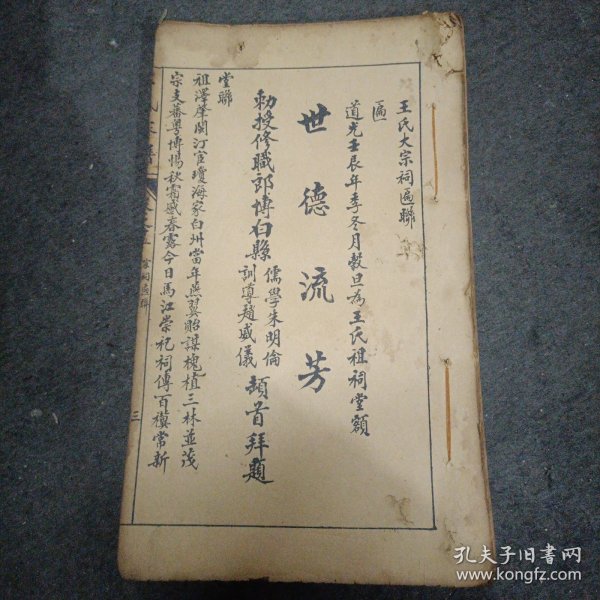 王氏大宗祠匾聯
匾
道光壬辰年季冬月穀旦為王氏祖祠堂額
世德流芳
勅授修職郎博白縣儒學朱明倫
訓導趙盛儀
頓首拜題
堂聯
祖澤肇閩汀官瓊海家白州當年燕翼貽謀槐植三林並茂
宗支蕃粵博惕秋霜感春露今日馬江崇祀祠傳百禩常新
三
孔夫子旧书网
www.kongfz.com